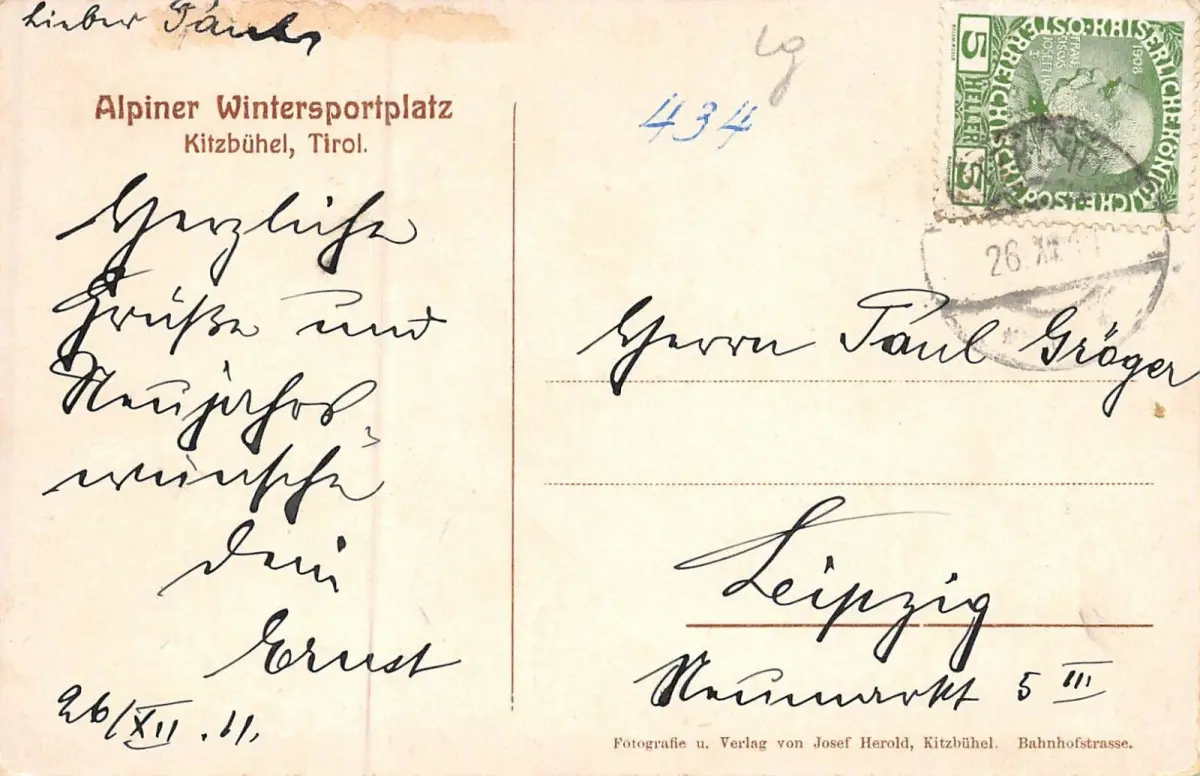 Lieber Paul,
Alpiner Wintersportplatz
Kitzbühel, Tirol.
Herzliche
Grüße und
Neujahrs
wünsche
Dein
Ernst
26/XII.11.
lg
434
KAISERLICHE KÖNIGLICHE ÖSTERREICHISCHE POST
1908
FRANCISCUS JOSEF I
5 HELLER 5
26.XII.11
Herrn Paul Gröger
Leipzig
Neumarkt 5 III
Fotografie u. Verlag von Josef Herold, Kitzbühel. Bahnhofstrasse.